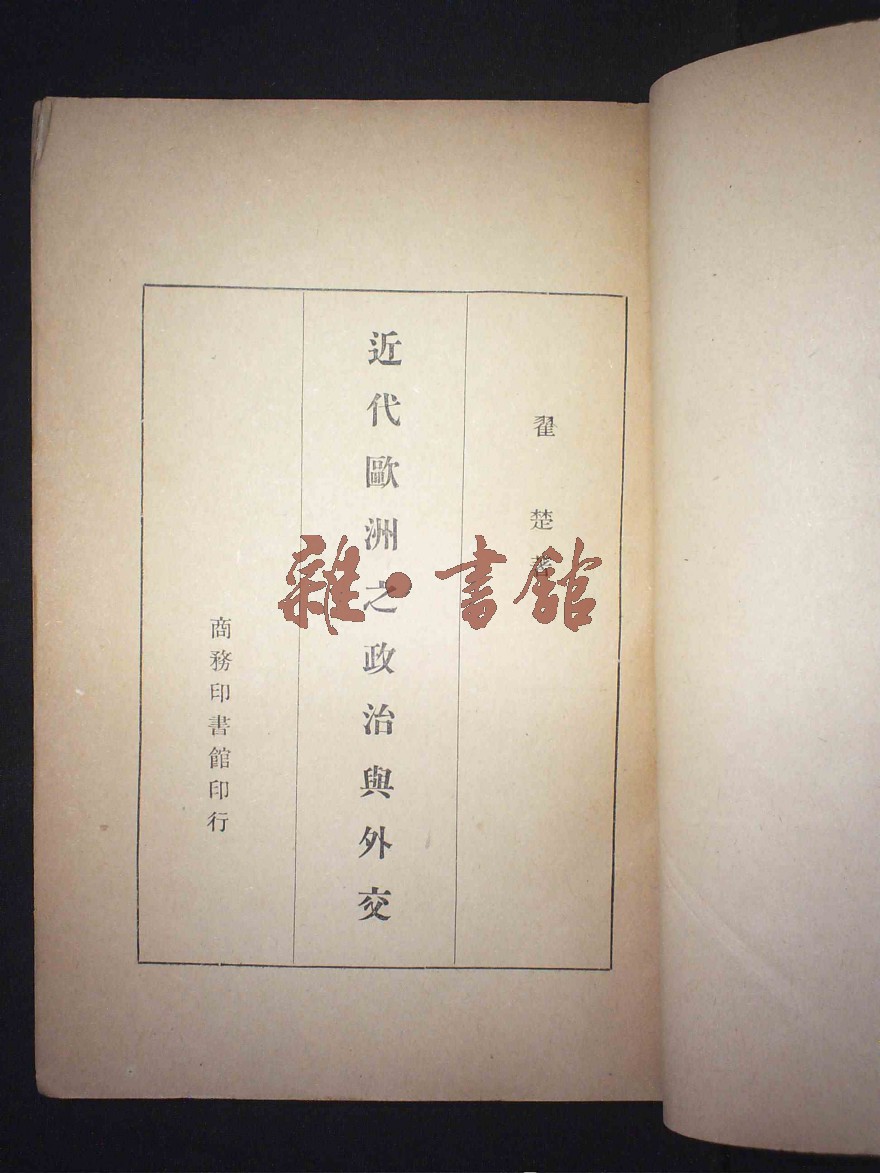 翟楚著
近代歐洲之政治與外交
商務印書館印行
雜·書館